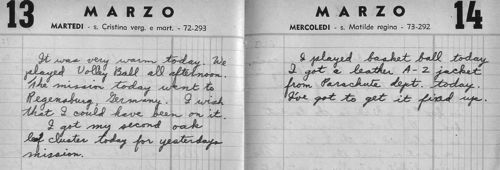 13 MARZO
MARTEDI - s. Cristina verg. e mart. - 72-293
It was very warm today. We
played Volley Ball all afternoon.
The mission today went to
Regensburg, Germany. I wish
that I could have been on it.
I got my second oak
leaf cluster today for yesterdays
mission.
MARZO 14
MERCOLEDI - s. Matilde regina - 73-292
I played basket ball today
I got a leather A-2 jacket
from Parachute dept. today.
I've got to get it fixed up.